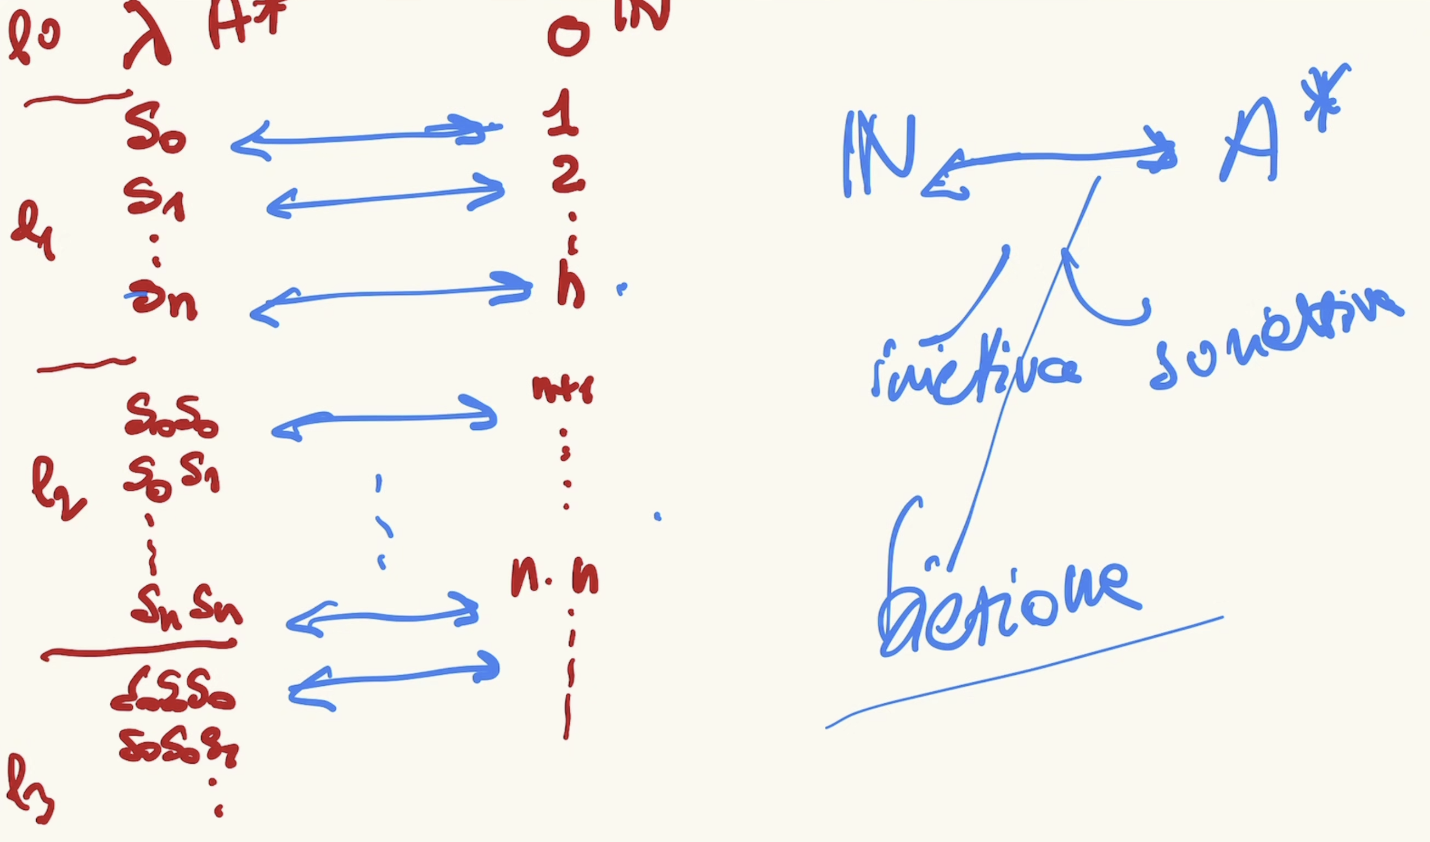 l0 λ A* 0 ℕ
S0 1
S1 2
l1
⋮ ⋮
Sn n
S0S0 n+1
l2 S0S1
SnSn n.n
S0S0S0
S0S0S1
l3
ℕ A*
iniettiva suriettiva
biezione